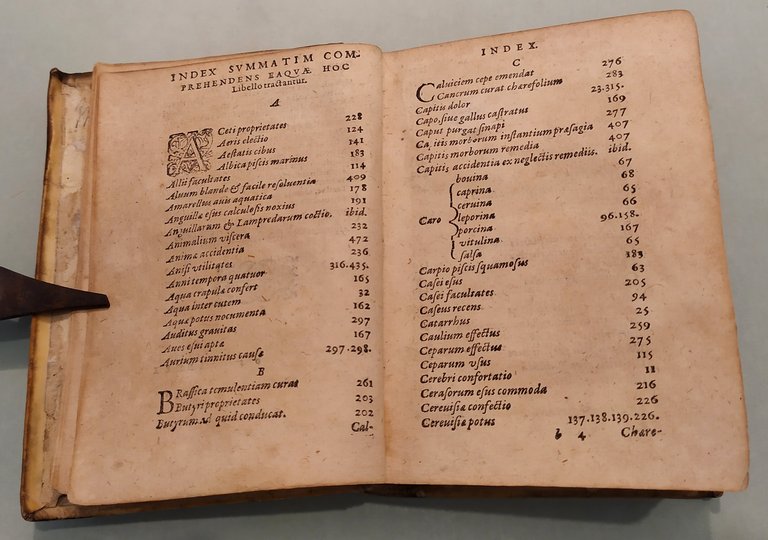 INDEX SVMMATIM COM-
PREHENDENS EAQVÆ HOC
Libello tractantur.
A
ACeti proprietates 228
Aeris electio 124
Aestatis cibus 141
Albica piscis marinus 183
Allii facultates 114
Aluum blande & facile resoluentia 409
Amarellus auis aquatica 178
Anguillæ esus calculosis noxius 191
Anguillarum & Lampredarum coctio. ibid.
Animalium viscera 232
Animæ accidentia 472
Anisi vtilitates 236
Anni tempora quatuor 316.435.
Aqua crapulæ confert 165
Aqua inter cutem 32
Aquæ potus nocumenta 162
Auditus grauitas 297
Aues esui aptæ 167
Aurium tinnitus causæ 297.298.
B
BRassica temulentiam curat 261
Butyri proprietates 203
Butyrum ad quid conducat. 202
Cal-
INDEX.
C
Caluiciem cepe emendat 276
Cancrum curat chærefolium 283
Capitis dolor 23.315.
Capo, siue gallus castratus 169
Caput purgat sinapi 277
Capitis morborum instantium præsagia 407
Capitis morborum remedia 407
Capitis accidentia ex neglectis remediis. ibid.
bouina 67
caprina 68
ceruina 65
Caro leporina 66
porcina 96.158.
vitulina 167
salsa 65
Carpio piscis squamosus 183
Casei esus 63
Casei facultates 205
Caseus recens 94
Catarrhus 25
Caulium effectus 259
Ceparum effectus 275
Ceparum vsus 115
Cerebri confortatio 11
Cerasorum esus commoda 216
Cereuisiæ confectio 226
Cereuisiæ potus 137.138.139.226.
b 4 Chære-